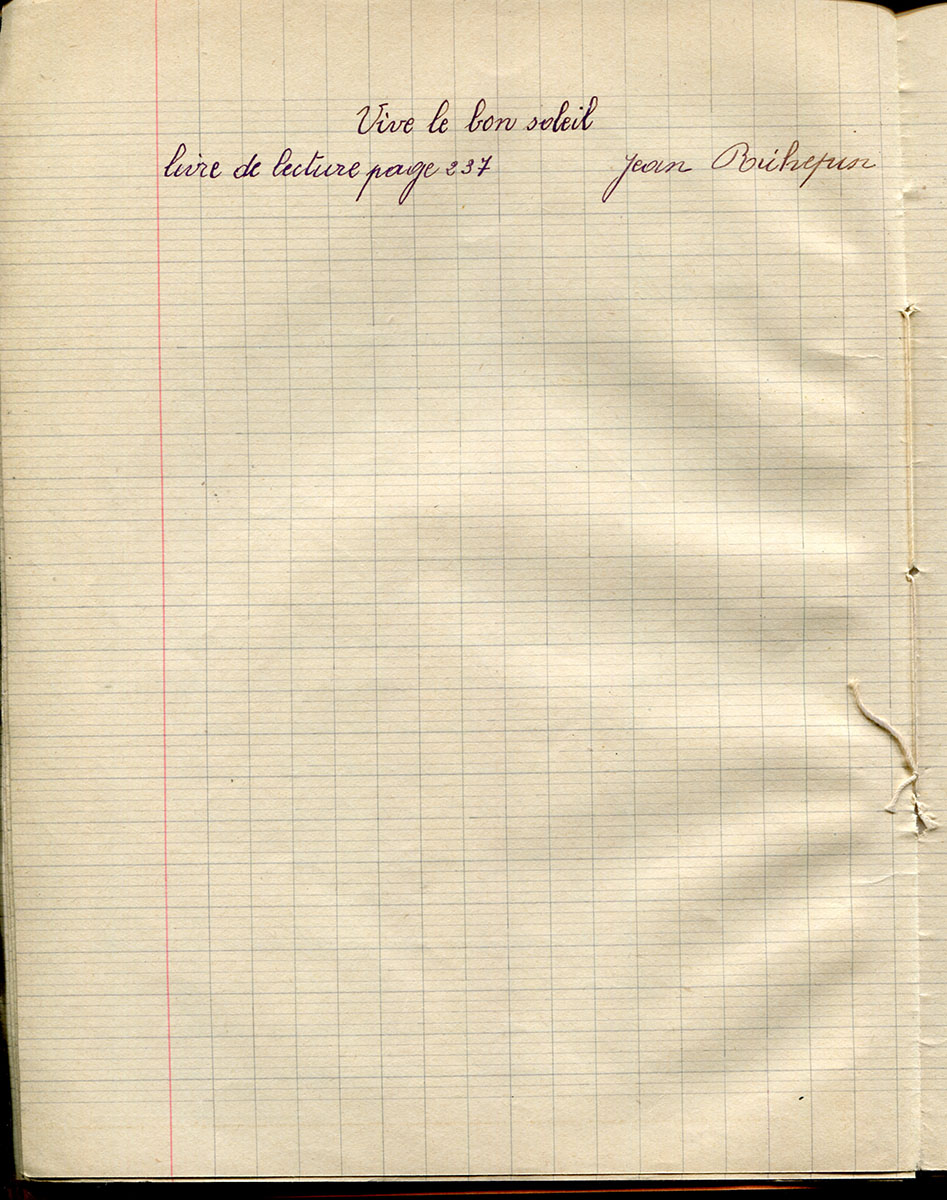 Vive le bon soleil
livre de lecture page 237 Jean Richepin